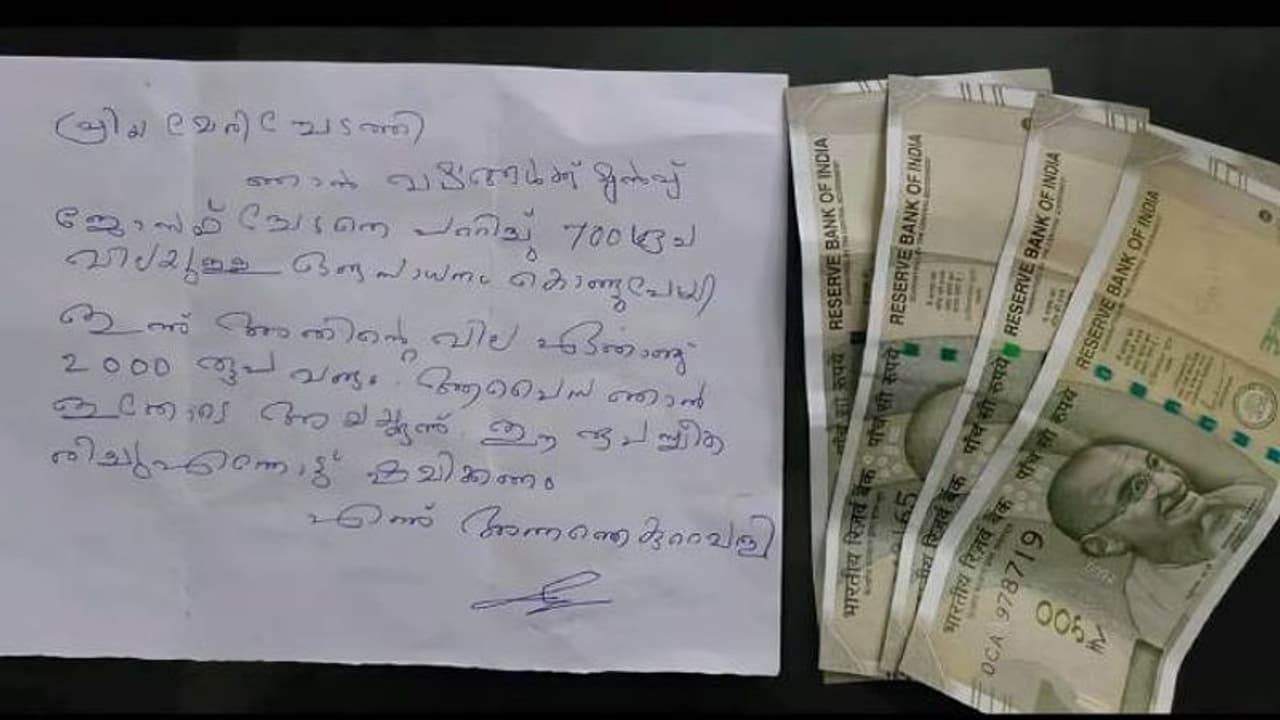 പ്രിയ മേരി ചേടത്തി
ഞാൻ വർഷങ്ങൾക്ക് മുൻപ്
ജോസഫ് ചേട്ടനെ പറ്റിച്ച് 700 രൂപ
വിലയുള്ള ഒരു സാധനം കൊണ്ടുപോയി
ഇന്ന് അതിന്റെ വില ഏതാണ്ട്
2000 രൂപ വരും. ആ പൈസ ഞാൻ
ഇതോടെ അയക്കുന്നു. ഈ രൂപ സ്വീക
രിച്ചു എന്നോട് ക്ഷമിക്കണം
എന്ന് അന്നത്തെ കുറ്റവാളി
RESERVE BANK OF INDIA
RESERVE BANK OF INDIA
RESERVE BANK OF INDIA
RESERVE BANK OF INDIA
पाँच सौ रुपये
पाँच सौ रुपये
पाँच सौ रुपये
पाँच सौ रुपये
भारतीय रिज़र्व बैंक
भारतीय रिज़र्व बैंक
भारतीय रिज़र्व बैंक
0CA 978719
500